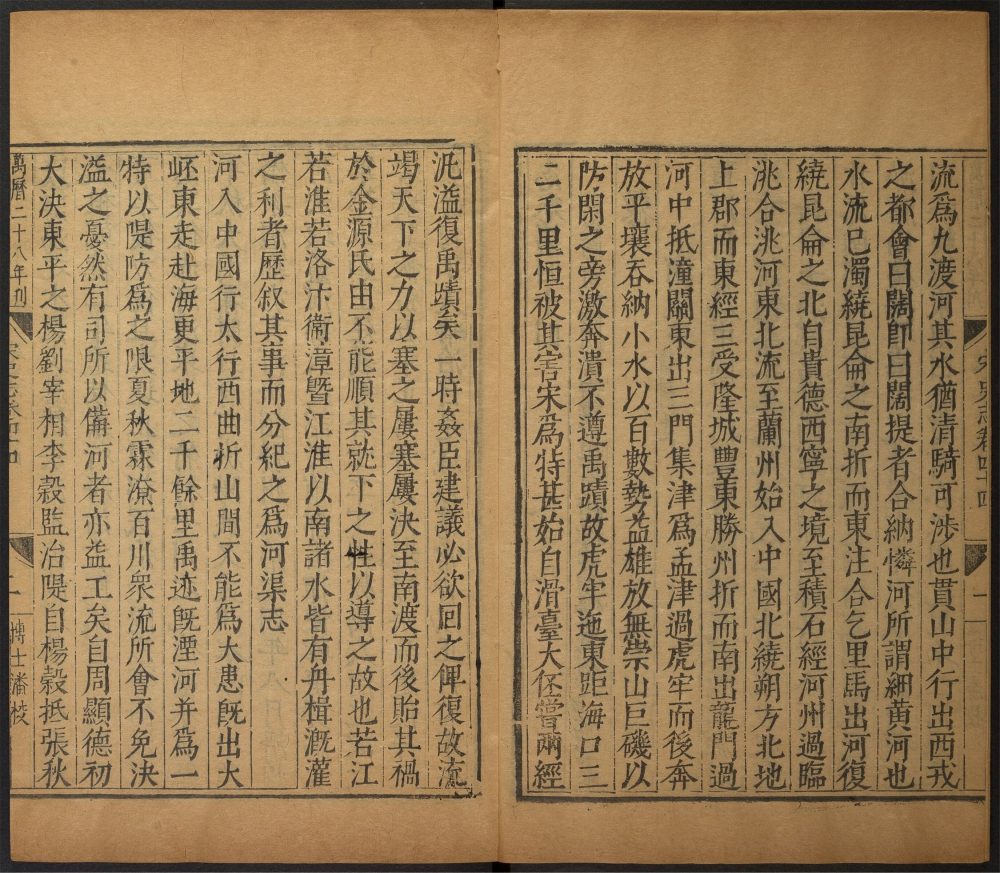 宋史志卷四十四
一
流爲九渡河其水猶清騎可涉也貫山中行出西戎
之都會曰闊即曰闊提者合納憐河所謂細黃河也
水流已濁繞昆侖之南折而東注合乞里馬出河復
繞昆侖之北自貴德西寧之境至積石經河州過臨
洮合洮河東北流至蘭州始入中國北繞朔方北地
上郡而東經三受隆城豐東勝州折而南出龍門過
河中抵潼關東出三門集津爲孟津過虎牢而後奔
放平壤吞納小水以百數勢益雄放無崇山巨磯以
防閑之旁激奔潰不遵禹蹟故虎牢迤東距海口三
二千里恒被其害宋爲特甚始自滑臺大伾嘗兩經
汎溢復禹蹟矣一時姦臣建議必欲回之俾復故流
竭天下之力以塞之屢塞屢決至南渡而後貽其禍
於金源氏由不能順其就下之性以導之故也若江
若淮若洛汴衞漳曁江淮以南諸水皆有丹楫溉灌
之利者歷叙其事而分紀之爲河渠志
河入中國行太行西曲折山間不能爲大患旣出大
岯東走赴海更平地二千餘里禹迹旣湮河并爲一
特以隄防爲之限夏秋霖潦百川衆流所會不免決
溢之憂然有司所以備河者亦益工矣自周顯德初
大決東平之楊劉宰相李穀監治隄自楊穀抵張秋
萬曆二十八年刊
宋史志卷四十四
博士潘校